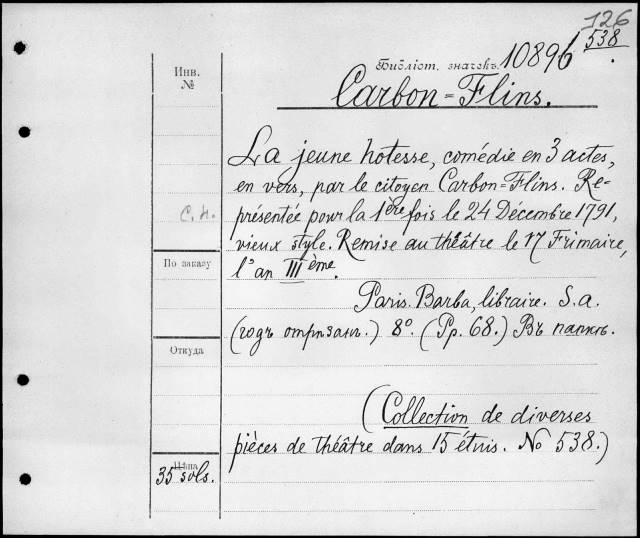 126
538.
Инв.
№
Библіот. значекъ. 10896
Carbon=Flins.
La jeune hotesse, comédie en 3 actes,
en vers, par le citoyen Carbon=Flins. Re-
présentée pour la 1ère fois le 24 Décembre 1791,
C. H.
vieux style. Remise au théâtre le 17 Frimaire,
По заказу
l'an IIIème.
Paris. Barba, libraire. S.a.
(годъ отрѣзанъ.) 8º. (Pp. 68.) Въ папкѣ.
Откуда
(Collection de diverses
pièces de théâtre dans 15 étuis. No 538.)
Цѣна
35 sols.